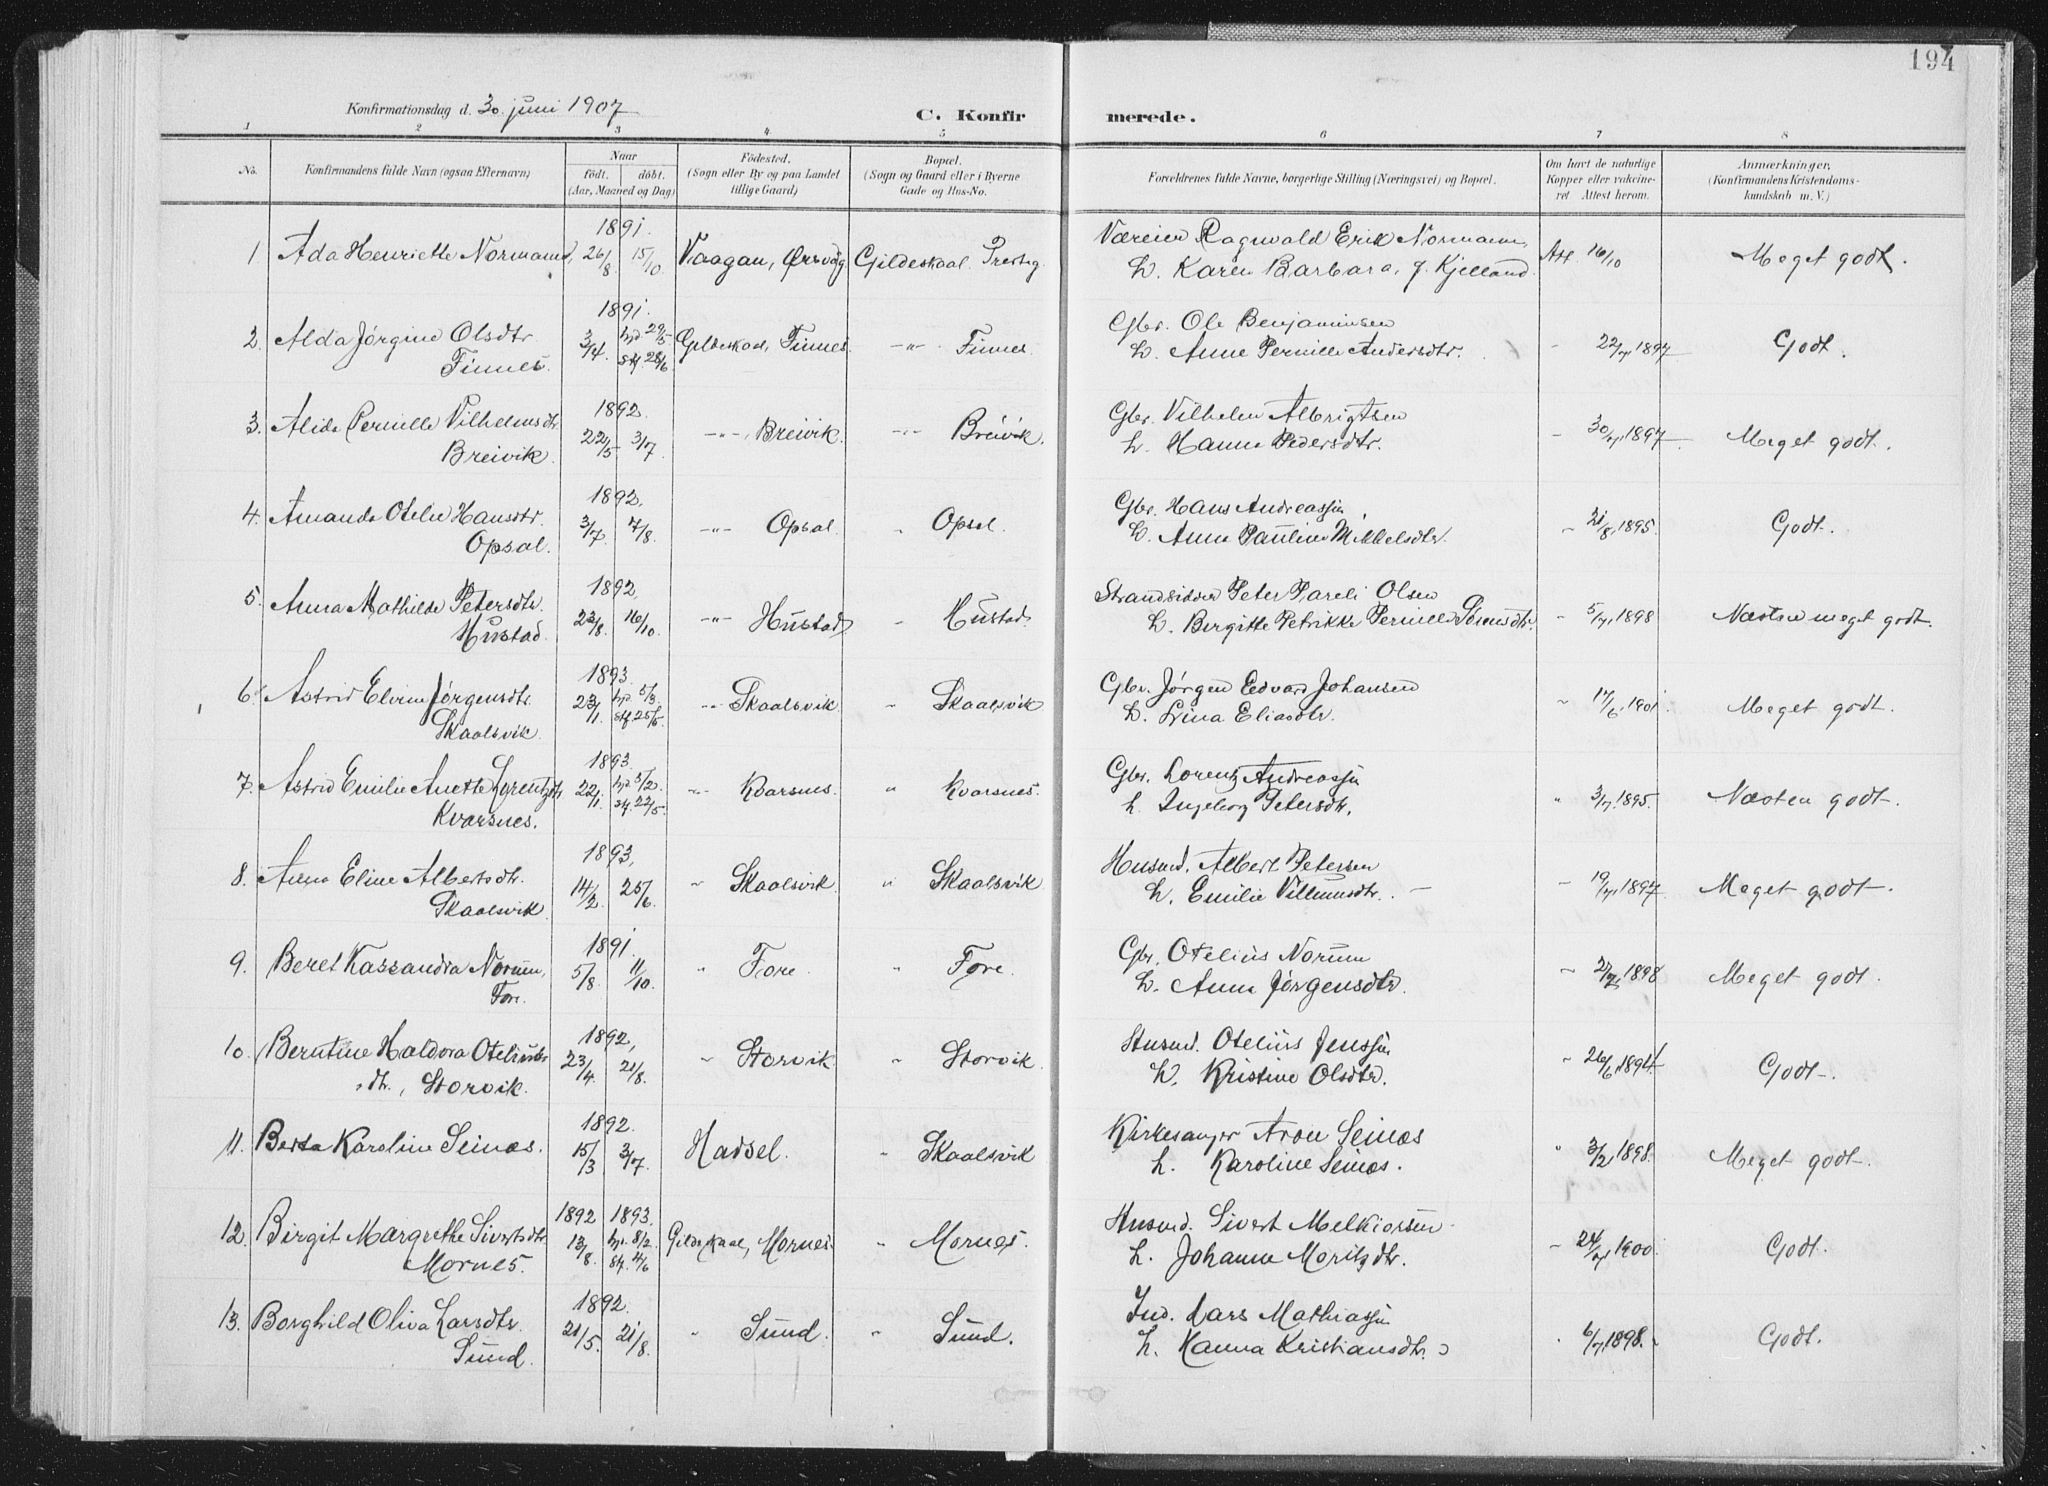 194
Konfirmationsdag d. 30. juni 1907
C. Konfirmerede.
1 2 3 4 5 6 7 8
No. Konfirmandens fulde Navn (ogsaa Efternavn) Naar født. døbt. (Aar, Maaned og Dag) Fødested. (Sogn eller By og paa Landet tillige Gaard) Bopæl. (Sogn og Gaard eller i Byerne Gade og Hus-No. Forældrenes fulde Navne, borgerlige Stilling (Næringsvei) og Bopæl. Om havt de naturlige Kopper eller vakcineret Attest herom. Anmærkninger, (Konfirmandens Kristendomskundskab m. V.)
1891.
1 Ada Henriette Normann, 26/8 15/10 Vaagan, Ørsvåg Gildeskaal. Presteg. Væreier Ragnvald Erik Normann, Att 16/10 Meget godt.
h. Karen Barbara, f. Kjelland.
1891.
2. Alda Jørgine Olsdtr 3/4. hjd 29/5 Gildeskaal, Finnes. -"- Finnes Gbr. Ole Benjaminsen - 22/7 1897 Godt.
Finnes. st. 28/6 h. Anne Pernille Andersdtr.
1892.
3. Alida Pernille Vilhelmsdtr. 22/5 3/7 -"- Breivik. -"- Breivik. Gbr. Vilhelm Albrigtsen - 30/7 1897 Meget godt.
Breivik. h. Hanna Pedersdtr.
1892.
4. Amanda Otelie Hansdtr. 3/7. 7/8. -"- Opsal " Opsal. Gbr. Hans Andreassen - 21/8 1895. Godt.
Opsal. h. Anna Pauline Mikkelsdtr.
1892
5. Anna Mathilde Petersdtr. 23/8. 16/10. -"- Hustad " Hustad. Strandsidder Peter Pareli Olsen - 5/7 1898 Næsten meget godt.
Hustad. h. Birgitte Petrikke Pernille Sørensdtr.
1893.
6. Astrid Elvine Jørgensdtr. 23/1. hjd 5/3. -"- Skaalsvik. " Skaalsvik Gbr. Jørgen Edvard Johansen - 17/6 1901 Meget godt.
Skaalsvik. st. 25/5. h. Lina Eliasdtr.
1893.
7. Astrid Emilie Anette Lorentzdtr 22/1. hjd 5/2. -"- Kvarsnes. " Kvarsnes. Gbr. Lorentz Andreassen " 3/7 1895. Næsten godt.
Kvarsnes. st. 22/5. h. Ingeborg Petersdtr.
1893,
8. Anna Eline Albertsdtr. 14/2. 25/6. " Skaalsvik. " Skaalsvik Husmd. Albert Petersen - 19/7 1897 Meget godt.
Skaalsvik. h. Emilie Villumsdtr.
1891.
9. Beret Kassandra Norum, 5/8 11/10. " Fore. " Fore. Gbr. Otelius Norum - 1898 Meget godt.
Fore. h. Anna Jørgensdtr.
1892,
10. Berntine Haldora Otelius- 23/4. 21/8. " Storvik " Storvik. Husmd. Otelius Jenssen " 26/6 1894 Godt.
dtr., Storvik. h. Kristine Olsdtr.
1892.
11. Berta Karoline Seinæs. 15/3 3/7. Hadsel. " Skaalsvik Kirkesanger Aron Seinæs " 3/2 1898. Meget godt.
h. Karoline Seinæs.
1892 1893.
12. Birgit Margrethe Sivertsdtr 13/8. hjd. 8/2. Gildeskaal, Mornes. " Mornes. Husmd. Sivert Melkiorsen - 24/7 1900. Godt.
Mornes. st. 4/6 h. Johanne Moritzdtr.
1892.
13. Borghild Oliva Larsdtr. 21/5. 21/8. " Sund. " Sund. Ind. Lars Mathiassen " 6/7 1898. Godt.
Sund. h. Hanna Kristiansdtr.